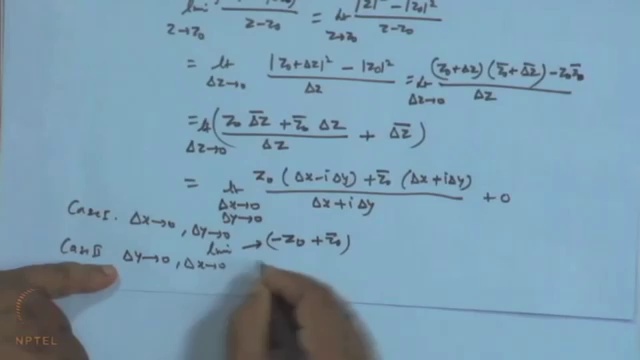 lim / z→z₀ / z-z₀ = lt z→z₀ |z|² - |z₀|² / z-z₀
= lt Δz→0 |z₀+Δz|² - |z₀|² / Δz = lt Δz→0 (z₀+Δz)(z̄₀+Δ̄z̄) - z₀z̄₀ / Δz
= lt Δz→0 ( z₀ Δ̄z̄ + z̄₀ Δz / Δz + Δ̄z̄ )
= lt Δx→0 Δy→0 z₀(Δx-iΔy) + z̄₀(Δx+iΔy) / Δx+iΔy + 0
Case I. Δx→0, Δy→0 lim → (-z₀ + z̄₀)
Case II Δy→0, Δx→0
NPTEL